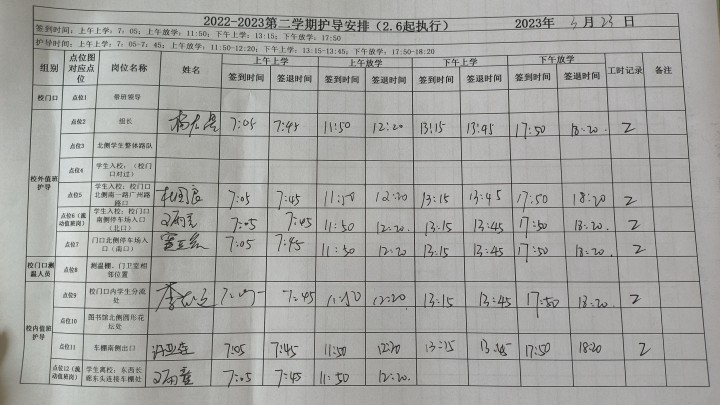 2022-2023第二学期护导安排（2.6起执行） 2023年 5月23日
签到时间：上午上学：7：05；上午放学：11:50；下午上学：13:15；下午放学：17:50
护导时间：上午上学：7：05-7：45；上午放学：11:50-12:20；下午上学：13:15-13:45；下午放学：17:50-18:20
组别 点位图对应点位 岗位名称 姓名 上午上学 上午放学 下午上学 下午放学 工时记录 备注
签到时间 签退时间 签到时间 签退时间 签到时间 签退时间 签到时间 签退时间
校门口 点位1 带班领导
校外值班护导 点位2 组长 7:05 7:45 11:50 12:20 13:15 13:45 17:50 18:20 2
点位3 北侧学生整体路队
点位4 学生入校：（校门口对过）
点位5 学生入校：校门口北侧南一路广州路路口 7:05 7:45 11:50 12:20 13:15 13:45 17:50 18:20 2
点位6（流动值班岗） 学生入校：校门口南侧停车场入口（北口） 7:05 7:45 11:50 12:20 13:15 13:45 17:50 18:20 2
点位7 门口北侧停车场入口（南口） 7:05 7:45 11:50 12:20 13:15 13:45 17:50 18:20 2
校门口测温人员 点位8 测温棚、门卫室相邻位置
校内值班护导 点位9 校门口内学生分流处 7:05 7:45 11:50 12:20 13:15 13:45 17:50 18:20 2
点位10 图书馆北侧圆形花坛处
点位11 车棚南侧出口 7:05 7:45 11:50 12:20 13:15 13:45 17:50 18:20 2
点位12（流动值班岗） 学生离校：东西长廊东头连接车棚处 7:05 7:45 11:50 12:20